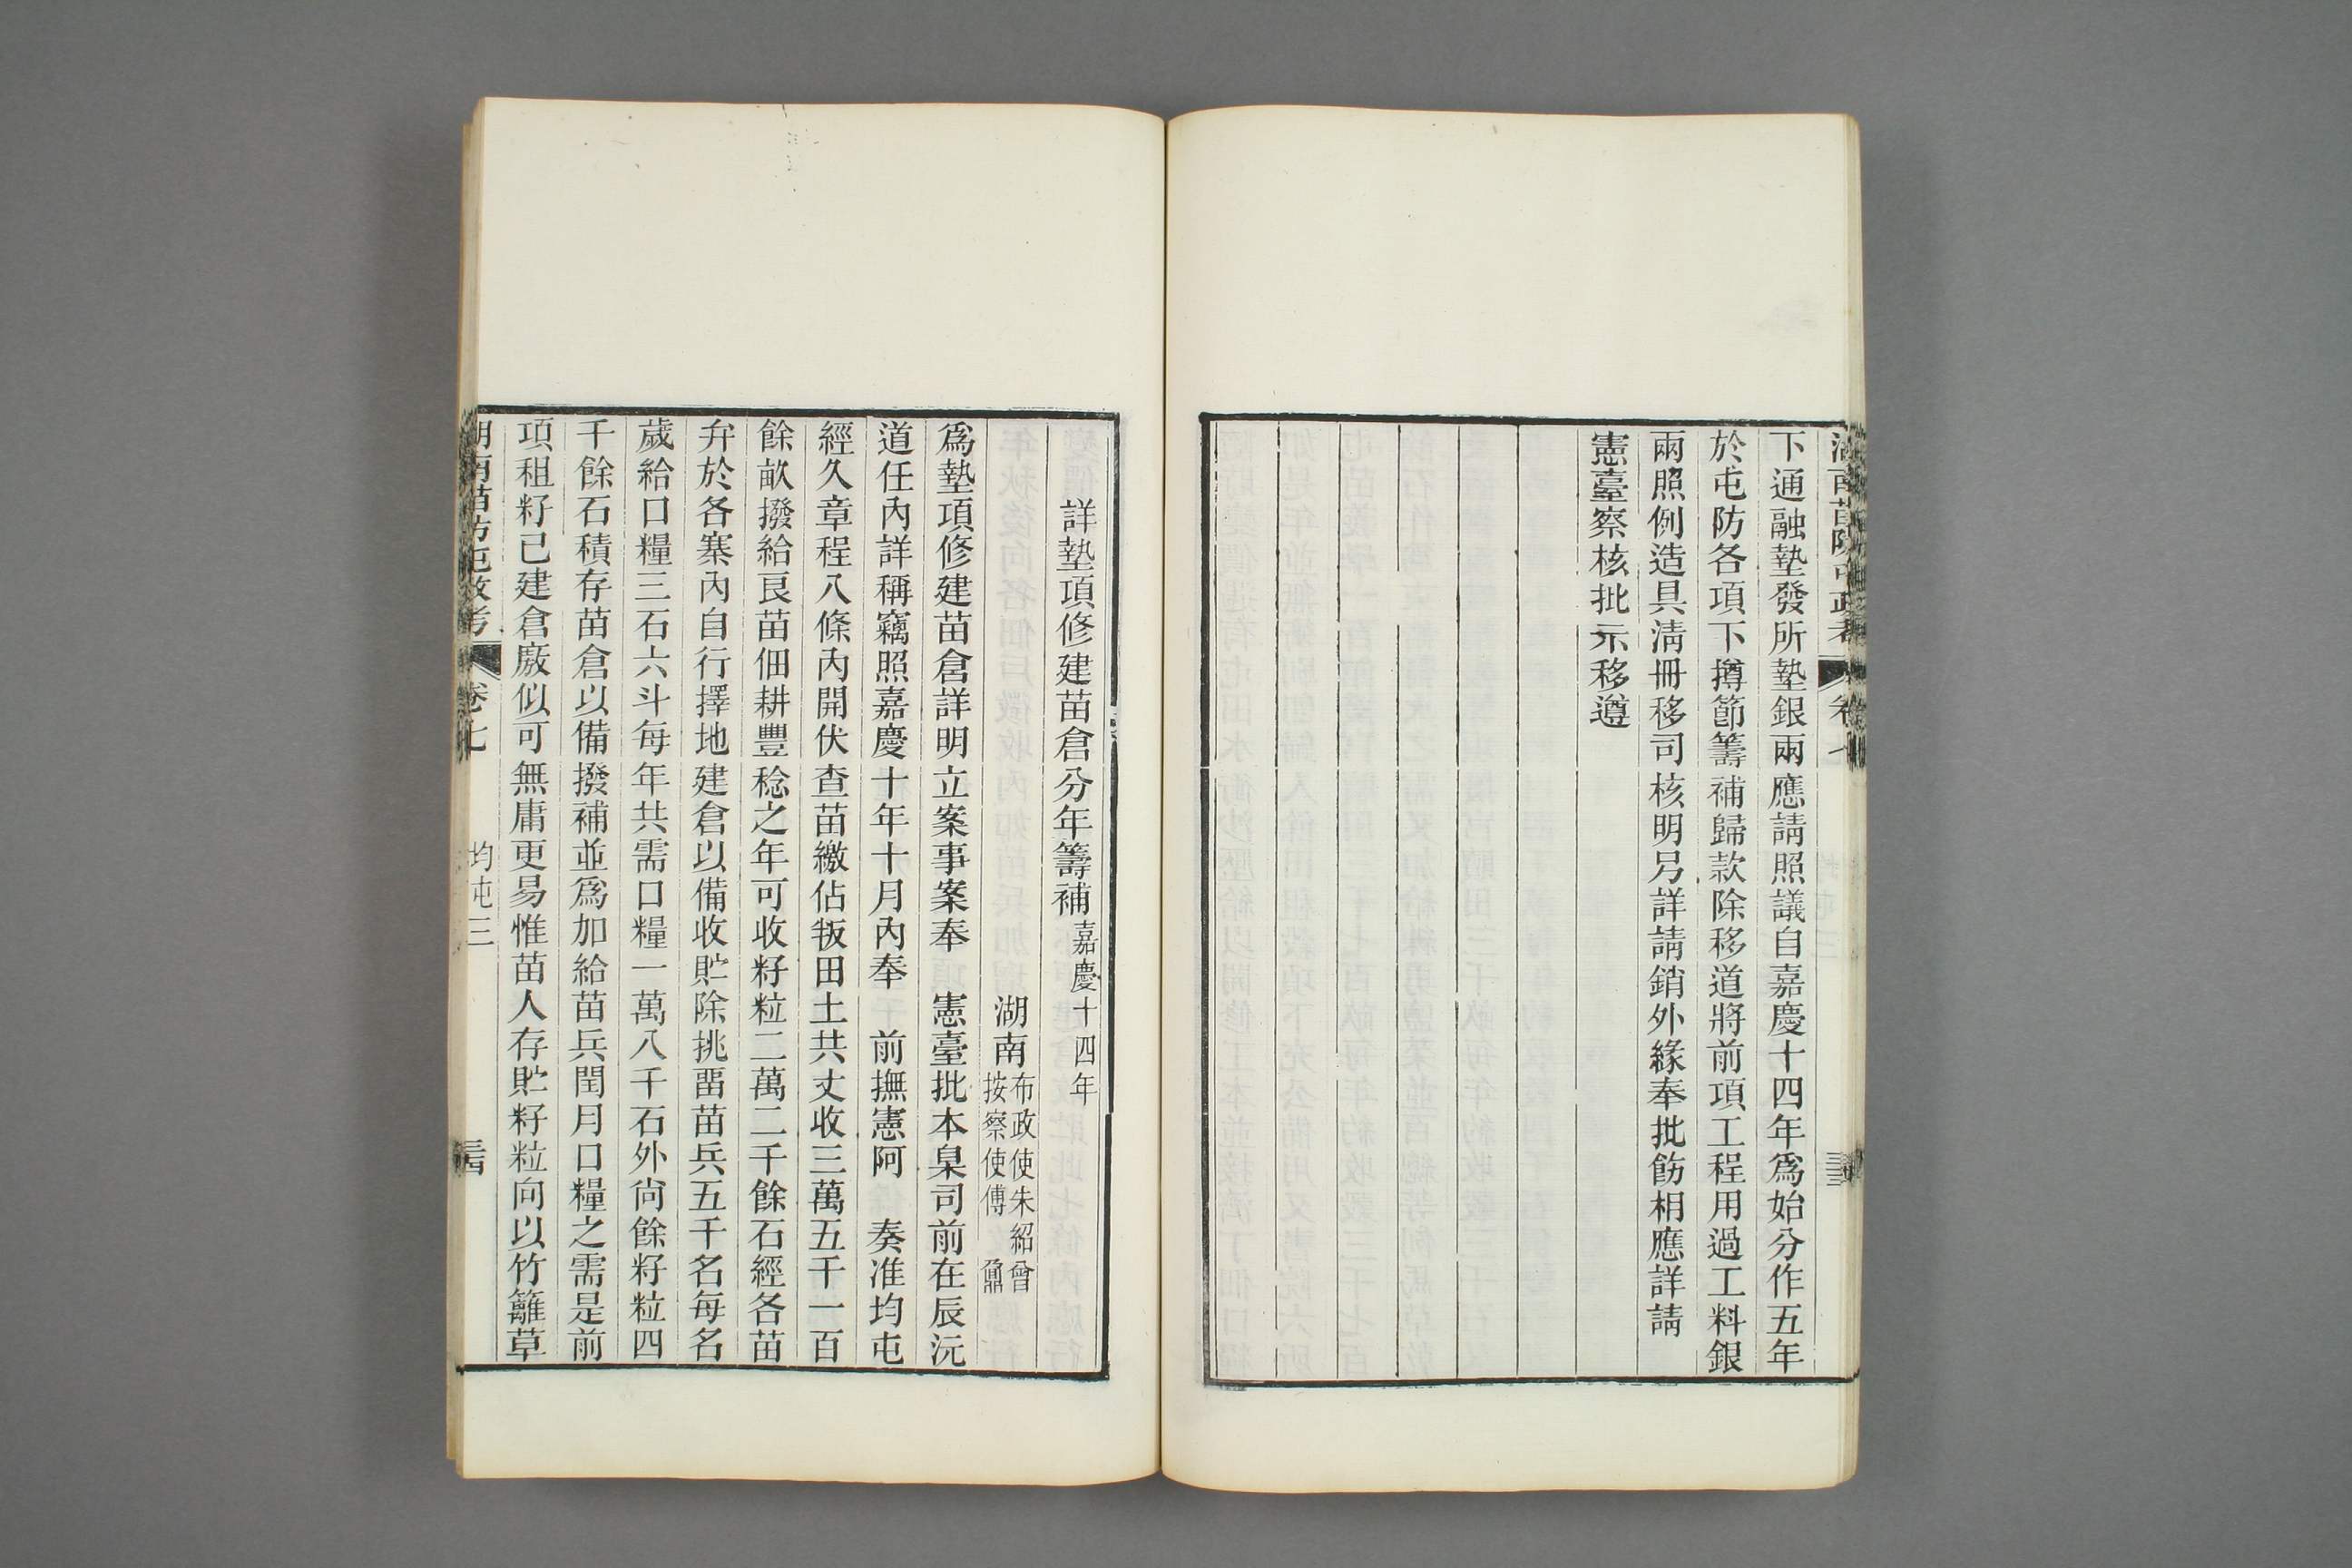 下通融墊發所墊銀兩應請照議自嘉慶十四年爲始分作五年
於屯防各項下撙節籌補歸款除移道將前項工程用過工料銀
兩照例造具淸冊移司核明另詳請銷外緣奉批飭相應詳請
憲臺察核批示移遵
詳墊項修建苗倉分年籌補嘉慶十四年
湖南布政使朱紹曾
按察使傅鼐
爲墊項修建苗倉詳明立案事案奉 憲臺批本臬司前在辰沅
道任內詳稱竊照嘉慶十年十月內奉 前撫憲阿 奏准均屯
經久章程八條內開伏查苗繳佔叛田土共丈收三萬五千一百
餘畝撥給良苗佃耕豐稔之年可收籽粒二萬二千餘石經各苗
弁於各寨內自行擇地建倉以備收貯除挑畱苗兵五千名每名
歲給口糧三石六斗每年共需口糧一萬八千石外尙餘籽粒四
千餘石積存苗倉以備撥補並爲加給苗兵閏月口糧之需是前
項租籽已建倉廒似可無庸更易惟苗人存貯籽粒向以竹籬草
湖南苗防屯政考 卷七 均屯三